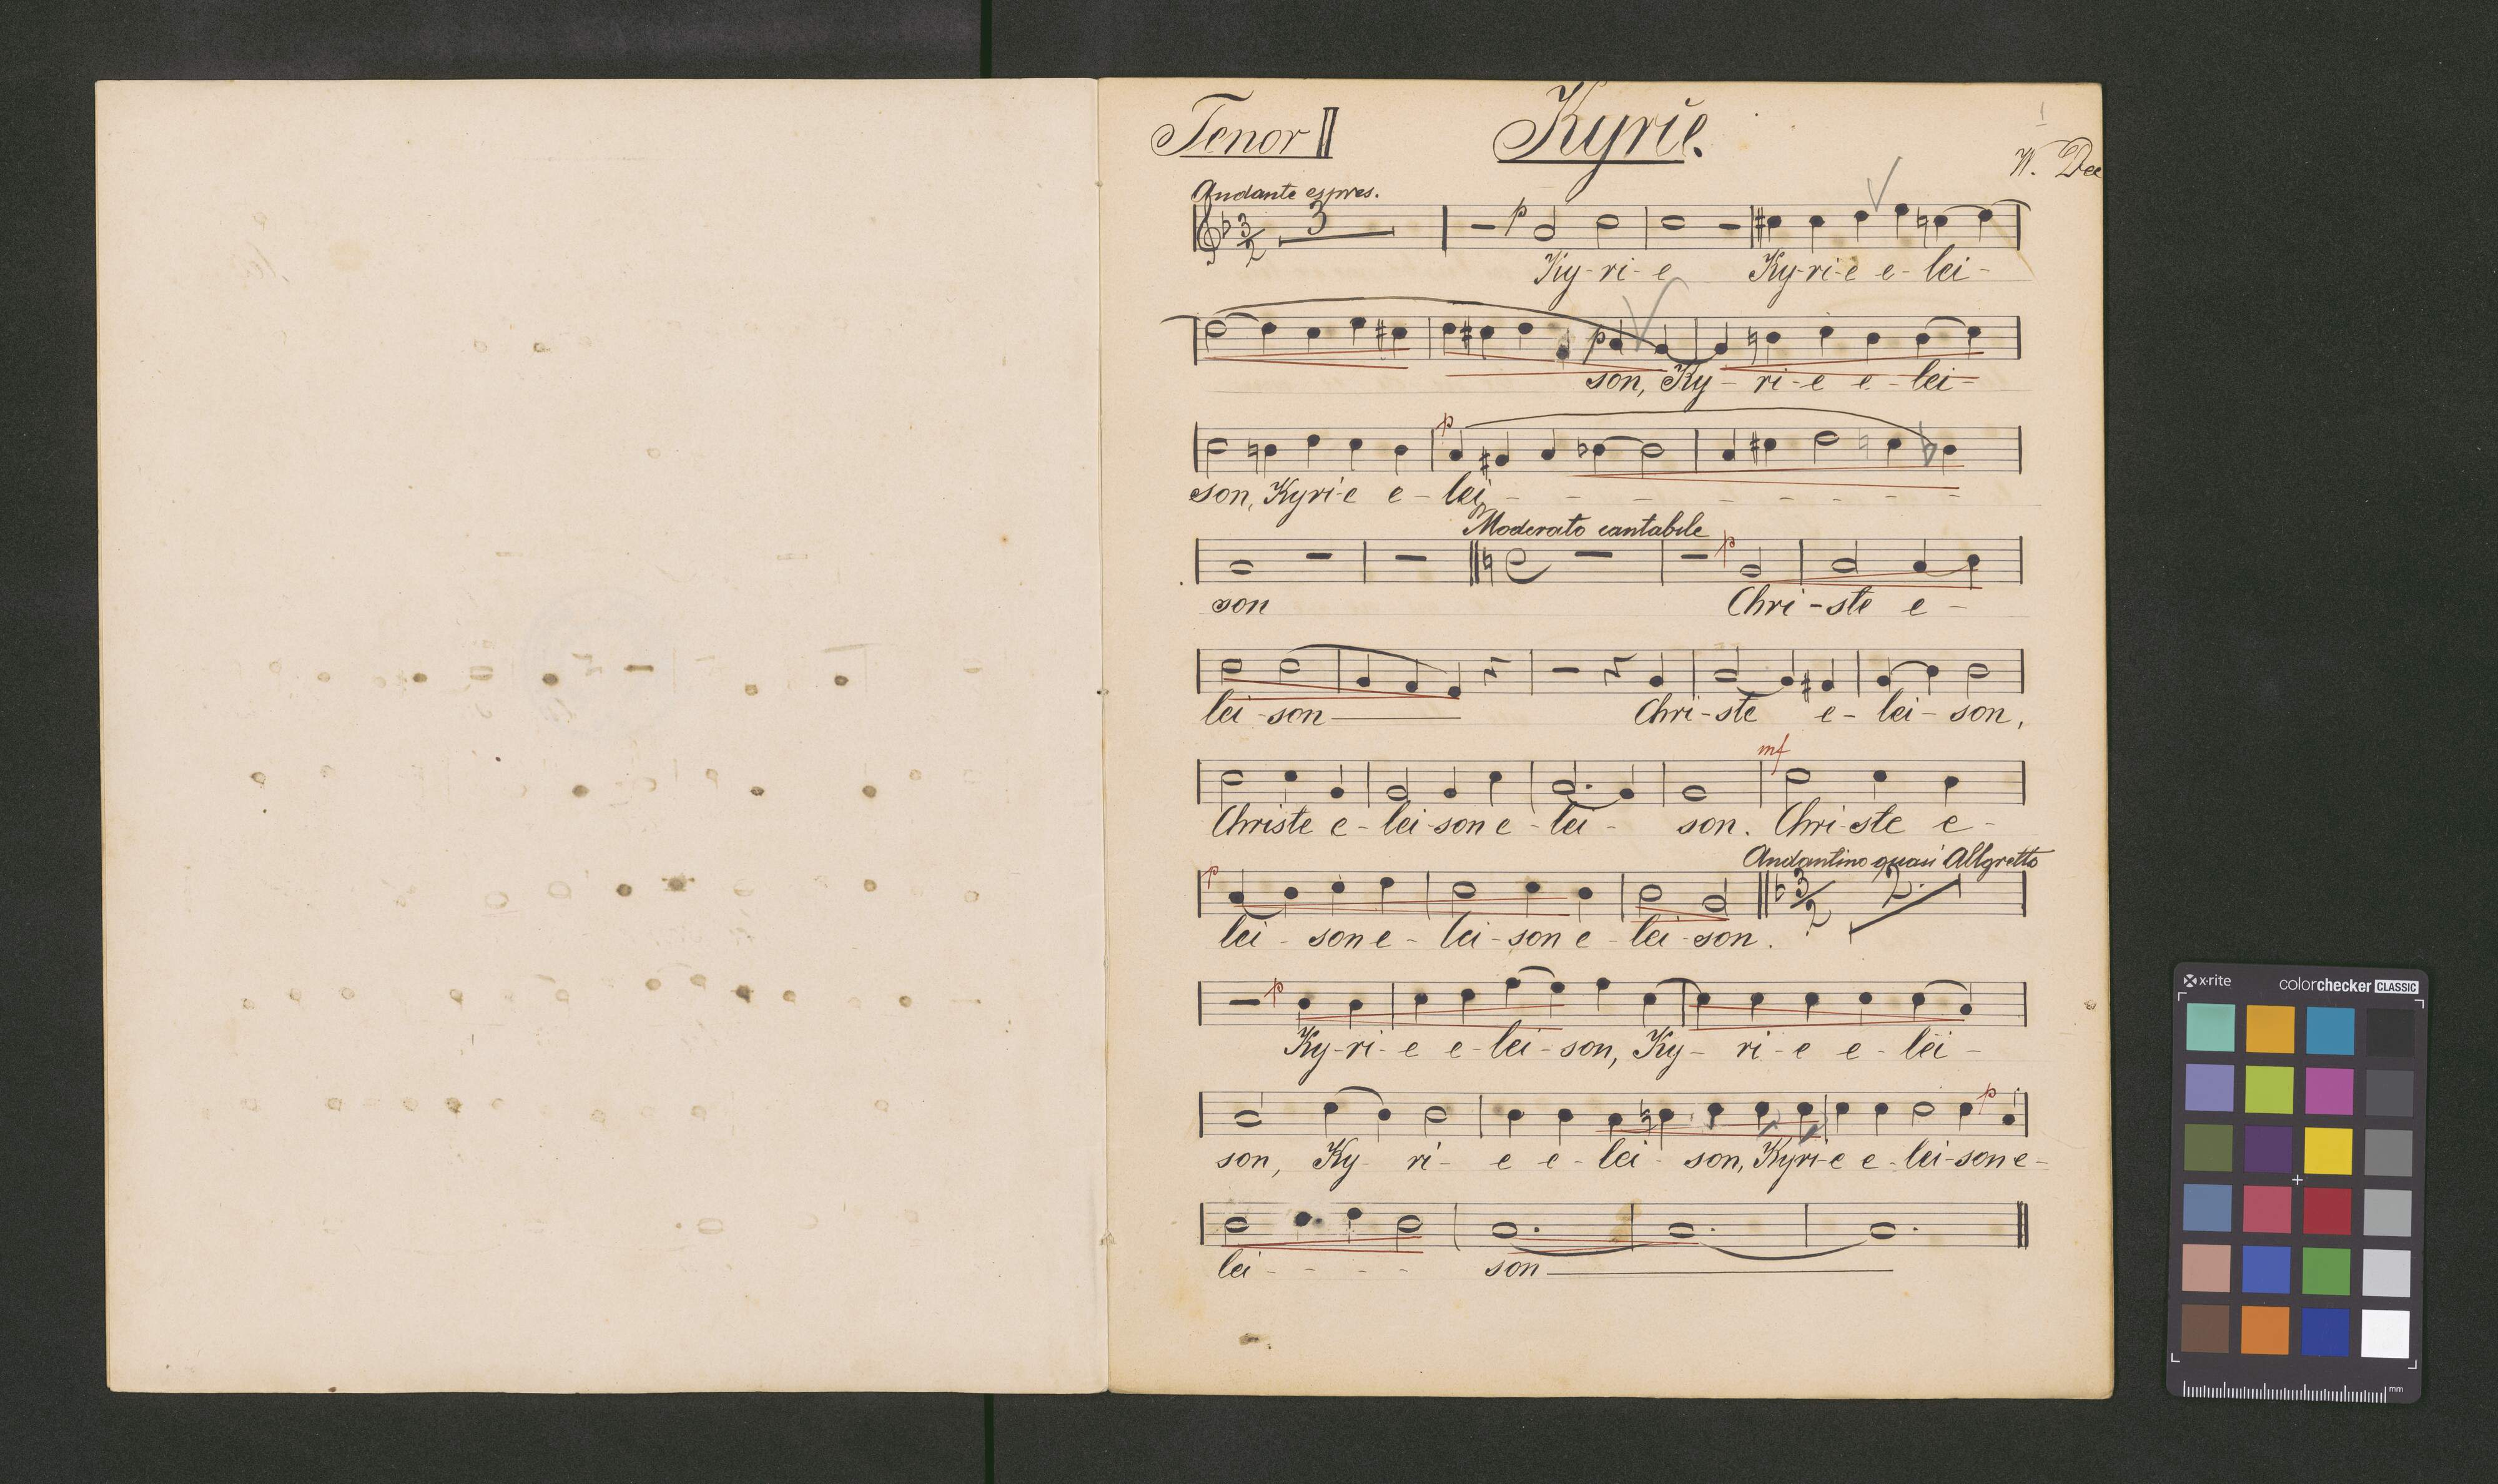 Tenor II
Kyrie.
1
W. Dee
Andante espres.
3
3
2
p
Ky-ri-e Ky-ri-e e-lei-
p
son, Ky-ri-e e-lei-
p
son, Kyri-e e-lei- - - - - - - - -
Moderato cantabile
p
son Chri-ste e-
lei-son Chri-ste e-lei-son,
mf
Christe e-lei-son e-lei- son. Chri-ste e-
Andantino quasi Allgretto
p
3
2
2.
lei-son e-lei-son e-lei-son.
p
Ky-ri-e e-lei-son, Ky-ri-e e-lei-
p
son, Ky-ri-e e-lei-son, Kyri-e e-lei-son e-
lei- - - - son
x-rite
colorchecker CLASSIC
mm